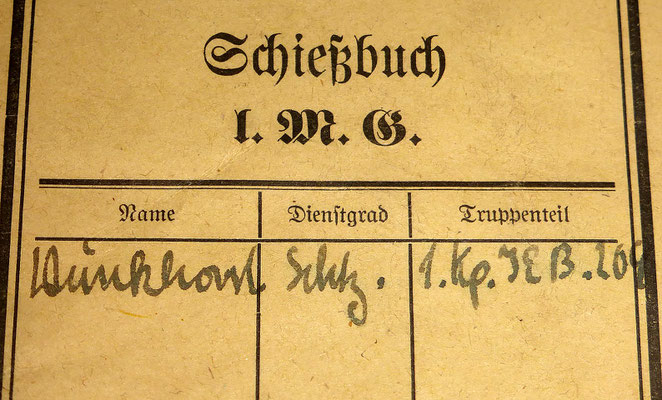 Schießbuch
l. M. G.
Name Dienstgrad Truppenteil
Schtz. 1. Kp. J E B.